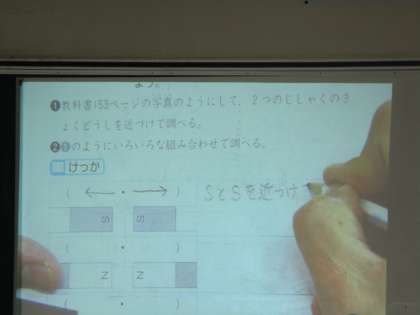 ❶教科書153ページの写真のようにして、2つのじしゃくのき
ょくどうしを近づけて調べる。
❷❶のようにいろいろな組み合わせて調べる。
けっか
( ← ・ → )
SとSを近づけ
S S
( ・ )
N N
( ・ )